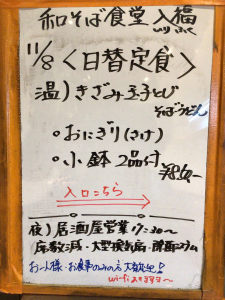 和そば食堂 入福
いりふく
11/8〈日替定食〉
温)きざみ玉子とじ
そばうどん
○おにぎり(さけ)
○小鉢 2品付
入口こちら
夜)居酒屋営業17:30〜
席数減・大型換気扇・
お一人様・お食事のみの方大歓迎!!
wi-fiあります